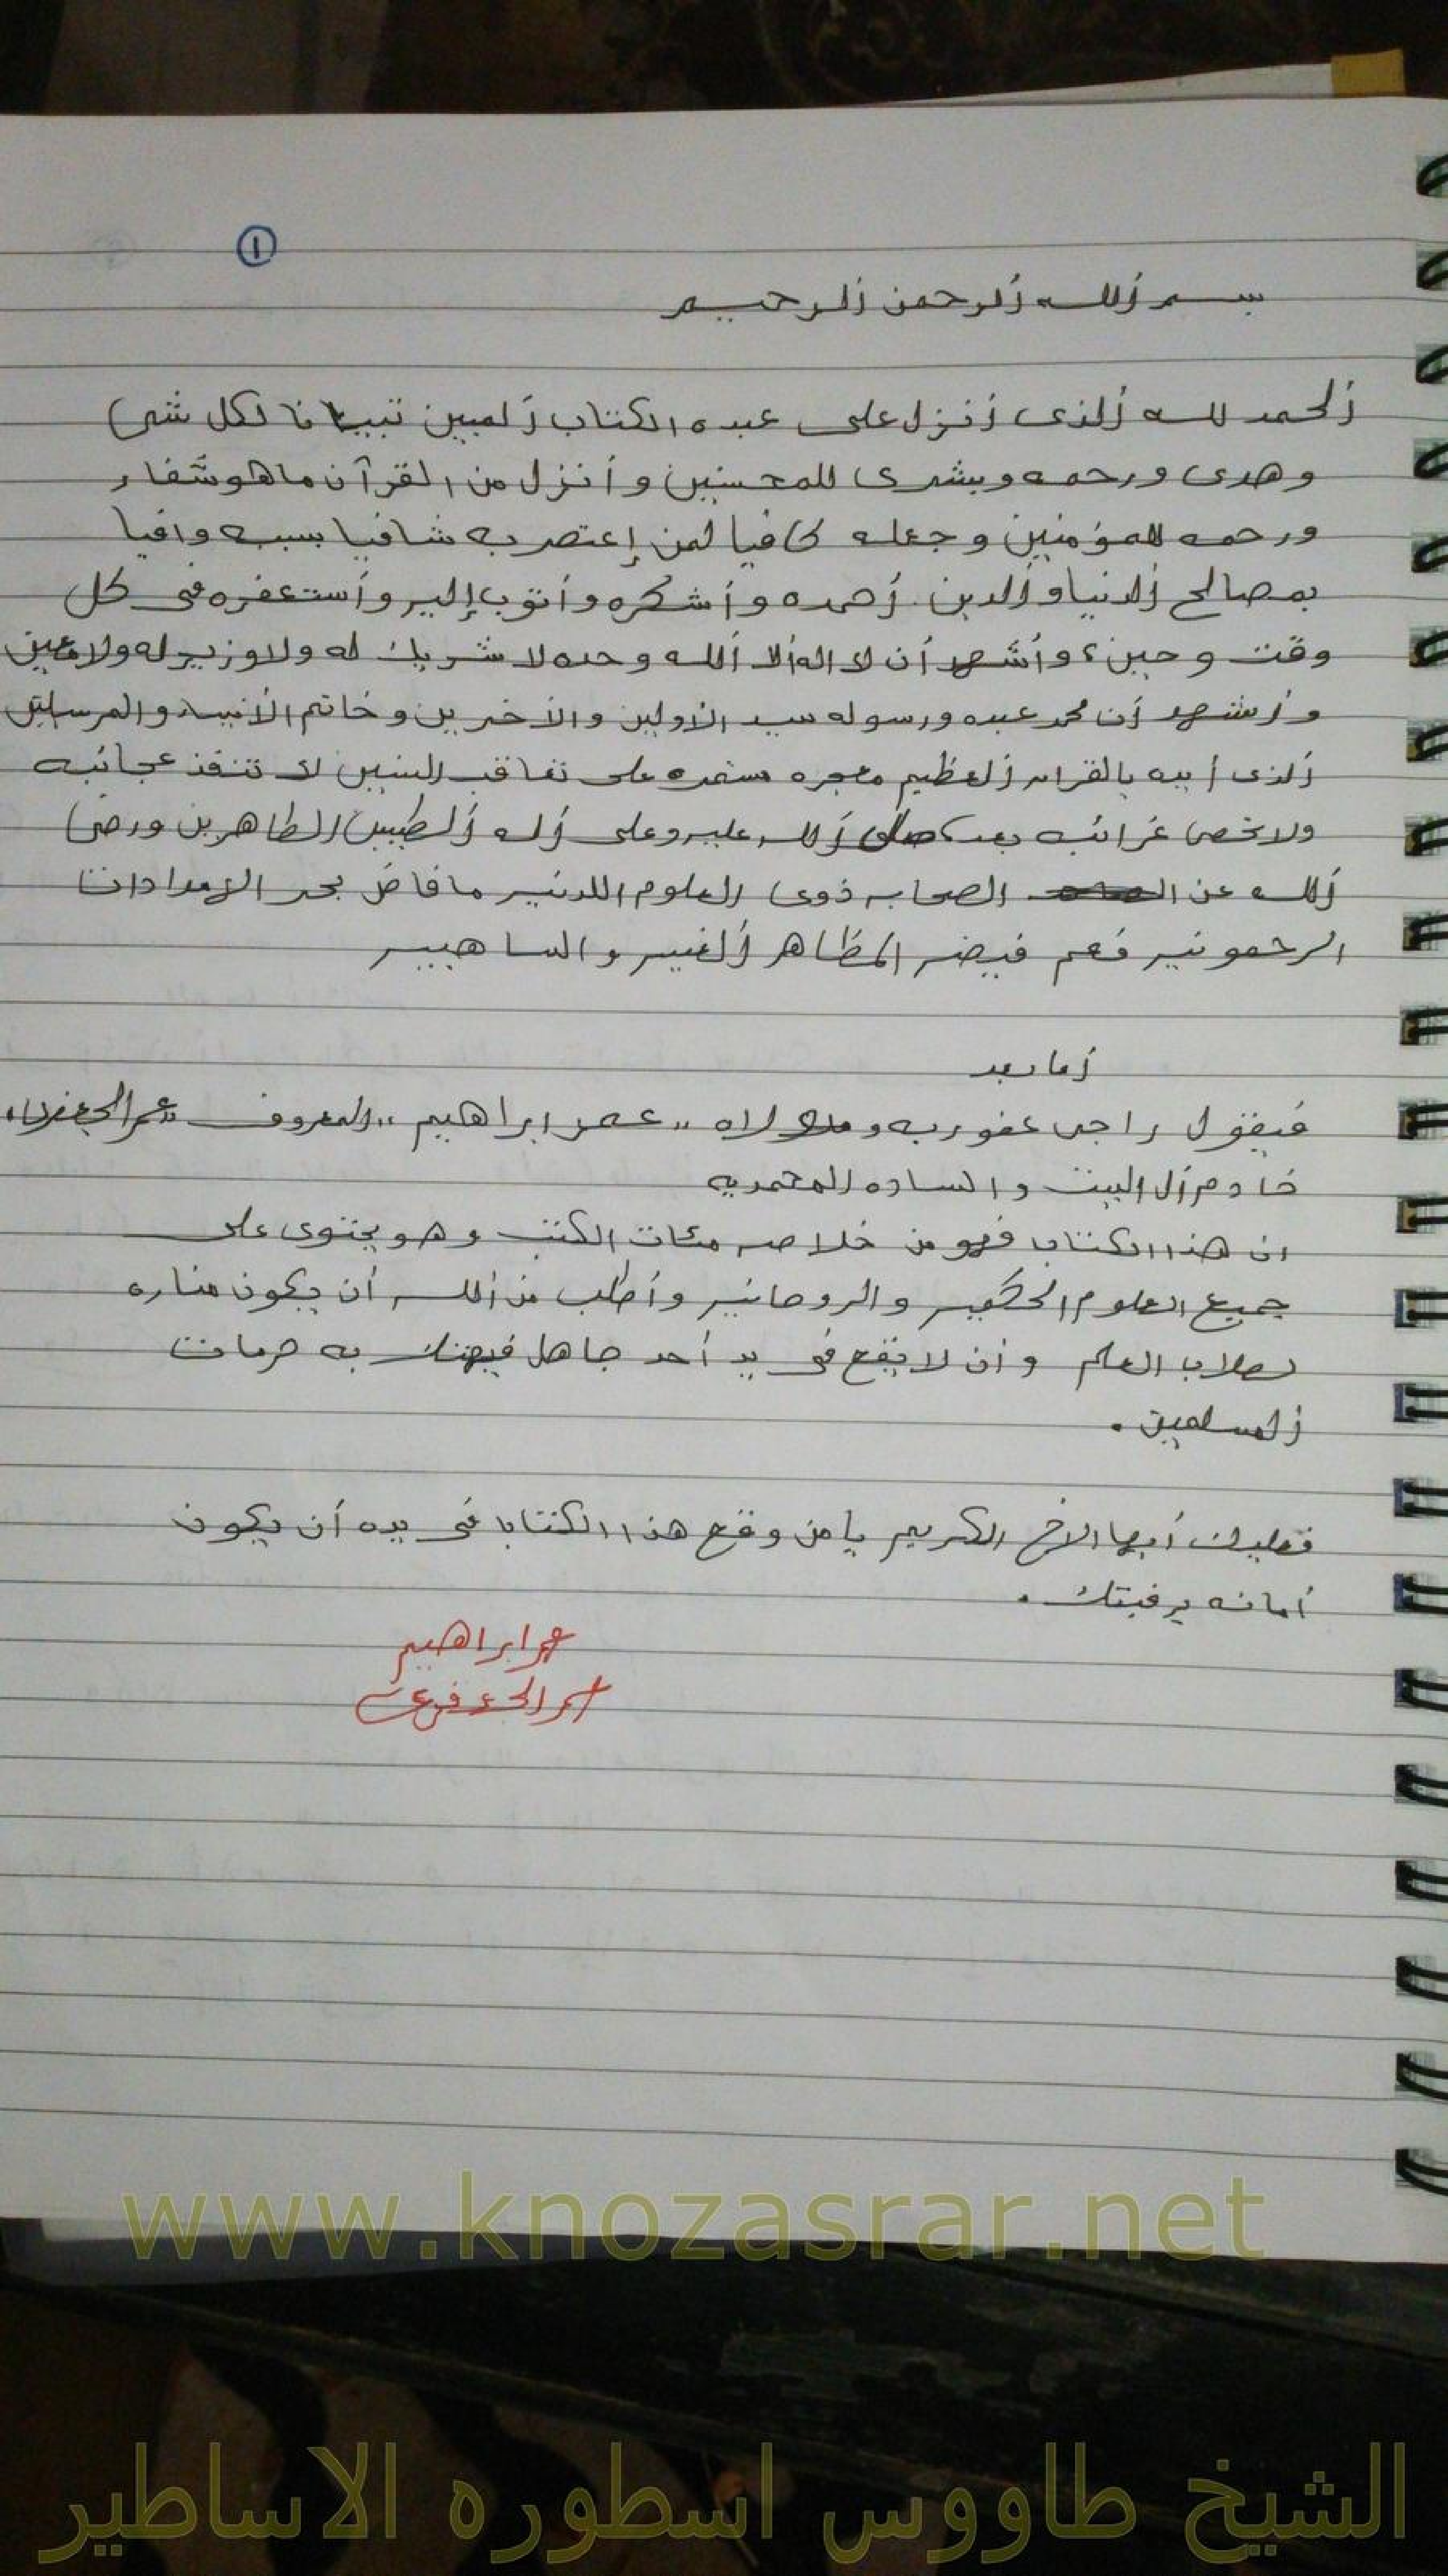 ١
بسم الله الرحمن الرحيم
الحمد لله الذى أنزل على عبده الكتاب المبين تبيانا لكل شى
وهدى ورحمه وبشرى للمحسنين وأنزل من القرآن ما هو شفاء
ورحمه للمؤمنين وجعله كافيا لمن إعتصر به شافيا بسبه وافيا
بمصالح الدنيا والدين. أحمده وأشكره وأتوب إليه وأستغفره فى كل
وقت وحين، وأشهد أن لا اله ألا الله وحده لا شريك له ولا وزير له ولا معين
وأشهد أن محمد عبده ورسوله سيد الأولين والأخرين وخاتم الأنبياء والمرسلين
الذى أيده بالقران العظيم معجزه مستمره على تعاقب السنين لا تنفذ عجائبه
ولا تحصى غرائبه صلى الله عليه وعلى أله الطيبين الطاهرين ورضى
الله عن الصحابه ذوى العلوم اللدنيه ما فاض بحر الإمدادات
الرحمونيه فعم فيضه المظاهر الغيبيه
أما بعد
فيقول راجى عفو ربه ومولاه "عمر ابراهيم" المعروف "عمر الجعفرى"
خادم أل البيت والساده المحمديه
ان هذا الكتاب فهو من خلاصه مئات الكتب وهو يحتوى على
جميع العلوم الحكميه والروحانيه وأطلب من الله أن يكون مناره
لطلاب العلم وأن لا يقع فى يد أحد جاهل فيهتك به حرمات
المسلمين.
فعليك أيها الأخ الكريم يا من وقع هذا الكتاب فى يده أن يكون
أمانه برقبتك.
عمر ابراهيم
www.knozasrar.net
الشيخ طاووس اسطوره الاساطير